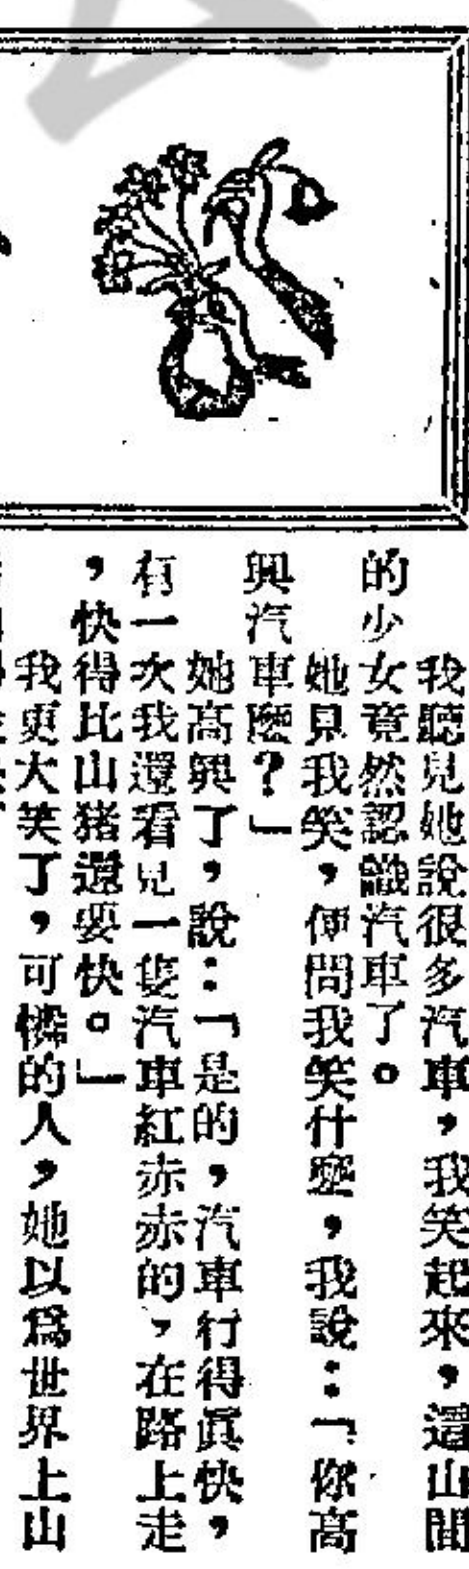 我聽見她說很多汽車，我笑起來，這山間
的少女竟然認識汽車了。
她見我笑，便問我笑什麼，我說：「你高
興汽車麼？」
她高興了，說：「是的，汽車行得眞快，
有一次我還看見一隻汽車紅赤赤的，在路上走
，快得比山猪還要快。」
我更大笑了，可憐的人，她以爲世界上山